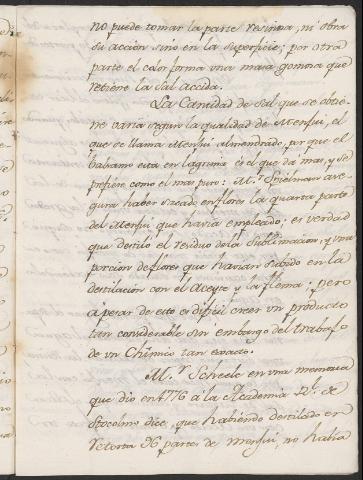 no puede tomar la parte resinosa, ni obra
su acción sino en la superficie; por otra
parte el color forma una masa gomosa que
retiene la sal accida.
La Cantidad de sal que se obtie-
ne varia segun la qualidad de Menjui, el
que se llama Menjui almendrado, por que el
balsamo esta en lagrima es el que dá mas, y se
prefiere como el mas puro: M.r Spielman ase-
gura haber sacado en flores la quarta parte
del Menjui que havia empleado; es verdad
que destiló el residuo de la sublimacion, y una
porcion de flores que havian subido en la
destilación con el Aceyte y la flema; pero
á pesar de esto es dificil creer un producto
tan considerable sin embargo del trabajo
de un Chimico tan exacto.
M.r Scheele en una memoria
que dio en 1776 a la Academia R.l de
Stocolmo dice, que habiendo destilado en
retorta 96 partes de menjui, no habia